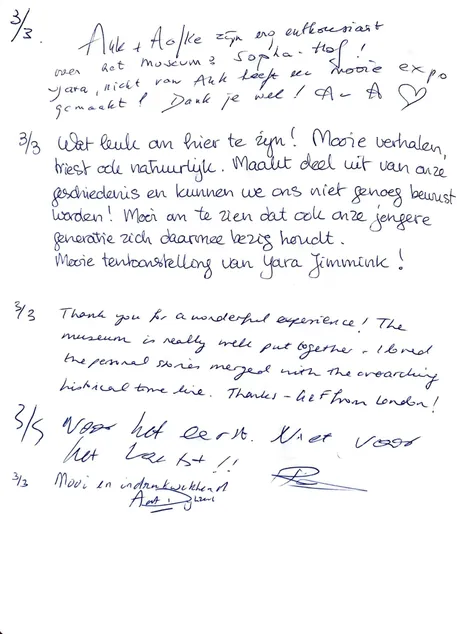 3/3. Auk + Aafke zijn erg enthousiast
over het museum & Sophia-Hof!
Yara, nicht van Auk heeft een mooie expo
gemaakt! Dank je wel! A ~ A ♡
3/3 Wat leuk om hier te zijn! Mooie verhalen,
triest ook natuurlijk. Maakt deel uit van onze
geschiedenis en kunnen we ons niet genoeg bewust
worden! Mooi om te zien dat ook onze jongere
generatie zich daarmee bezig houdt.
Mooie tentoonstelling van Yara Jimmink!
3/3 Thank you for a wonderful experience! The
museum is really well put together. I loved
the personal stories merged with the overarching
historical time line. Thanks - from London!
3/3 Voor het eerst. Niet voor
het laatst!!
3/3 Mooi en indrukwekkend